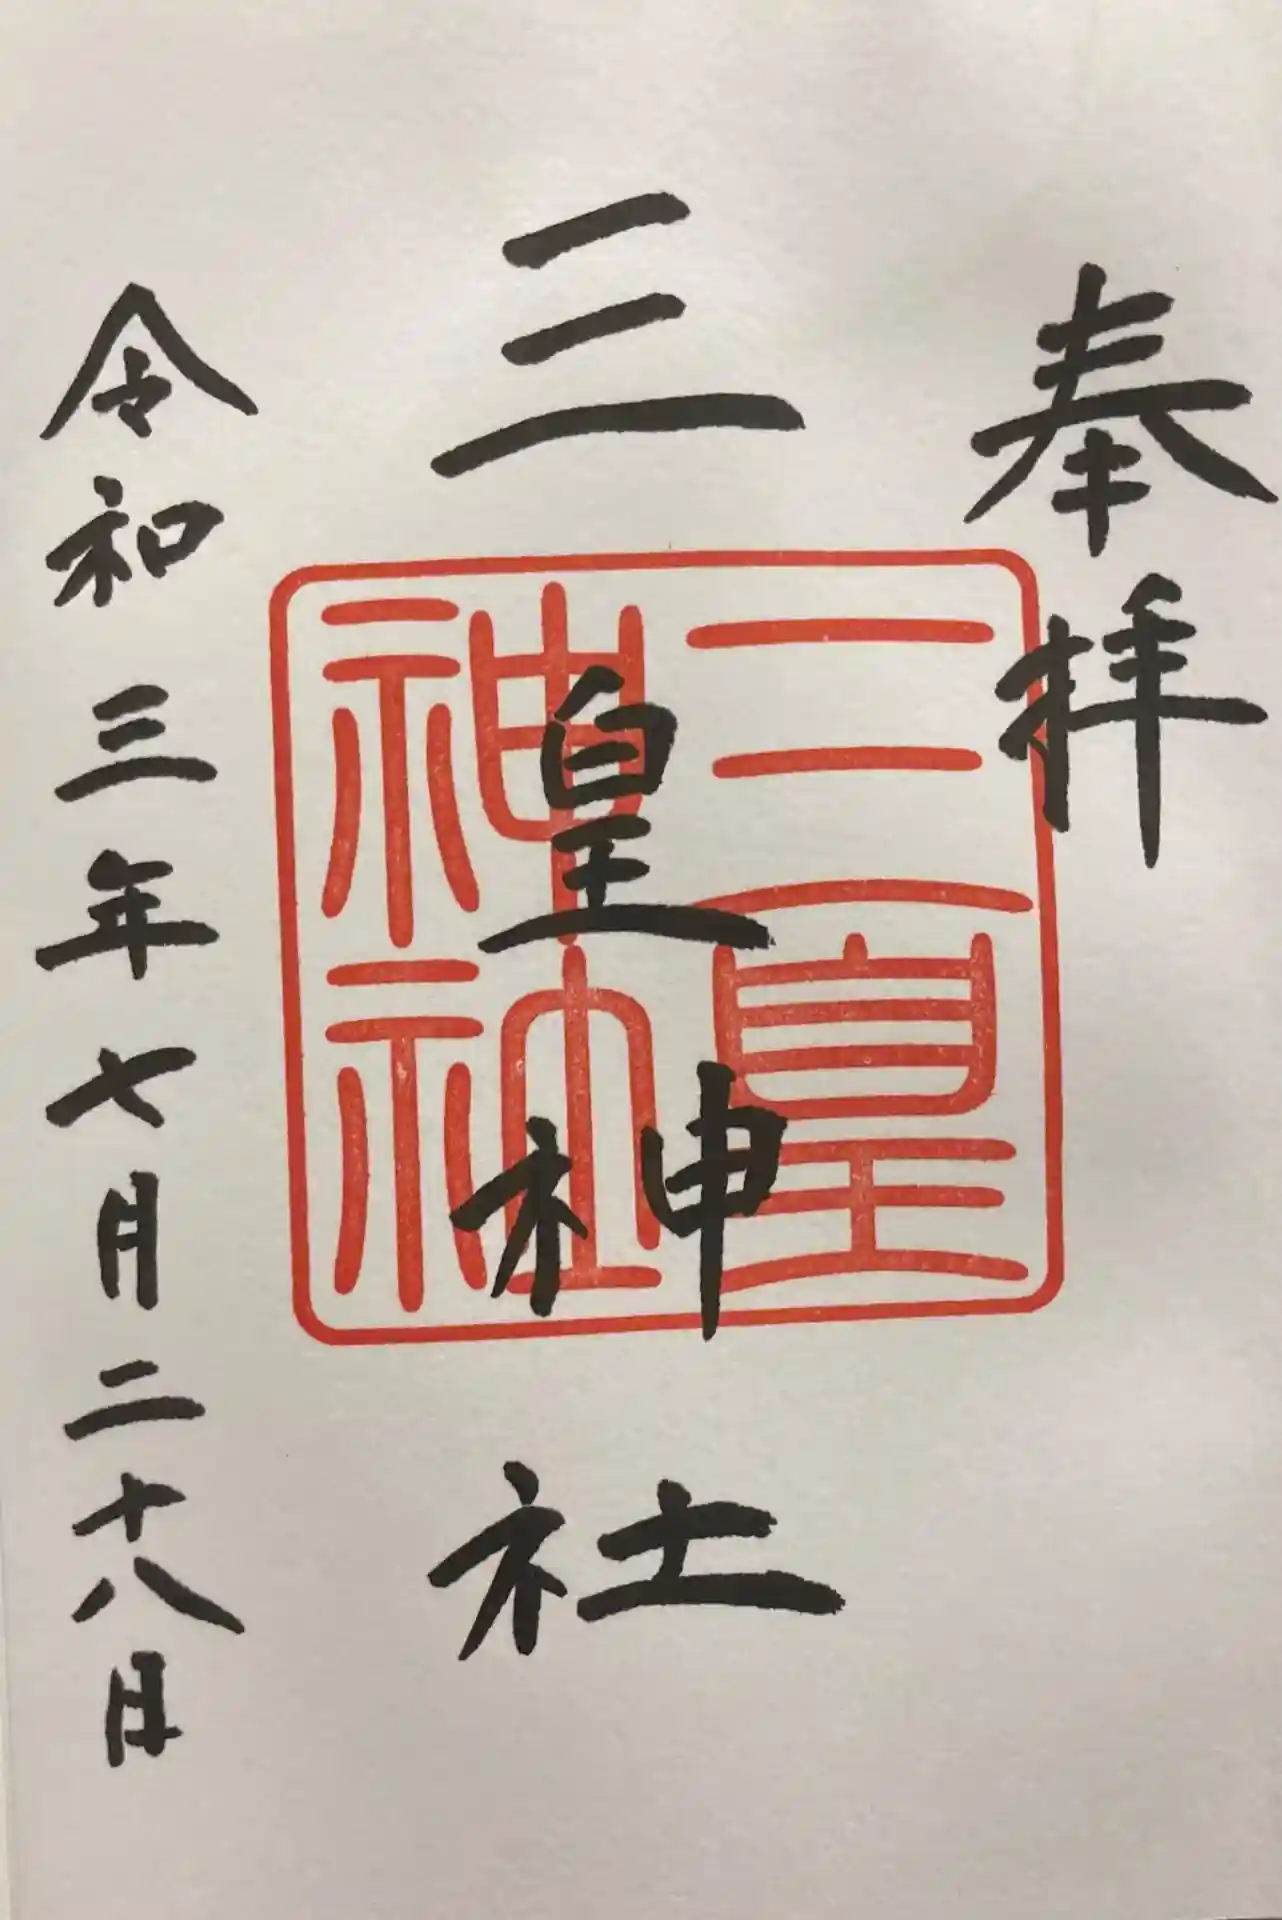 奉拝
三皇神社
三皇
神社
令和三年七月二十八日